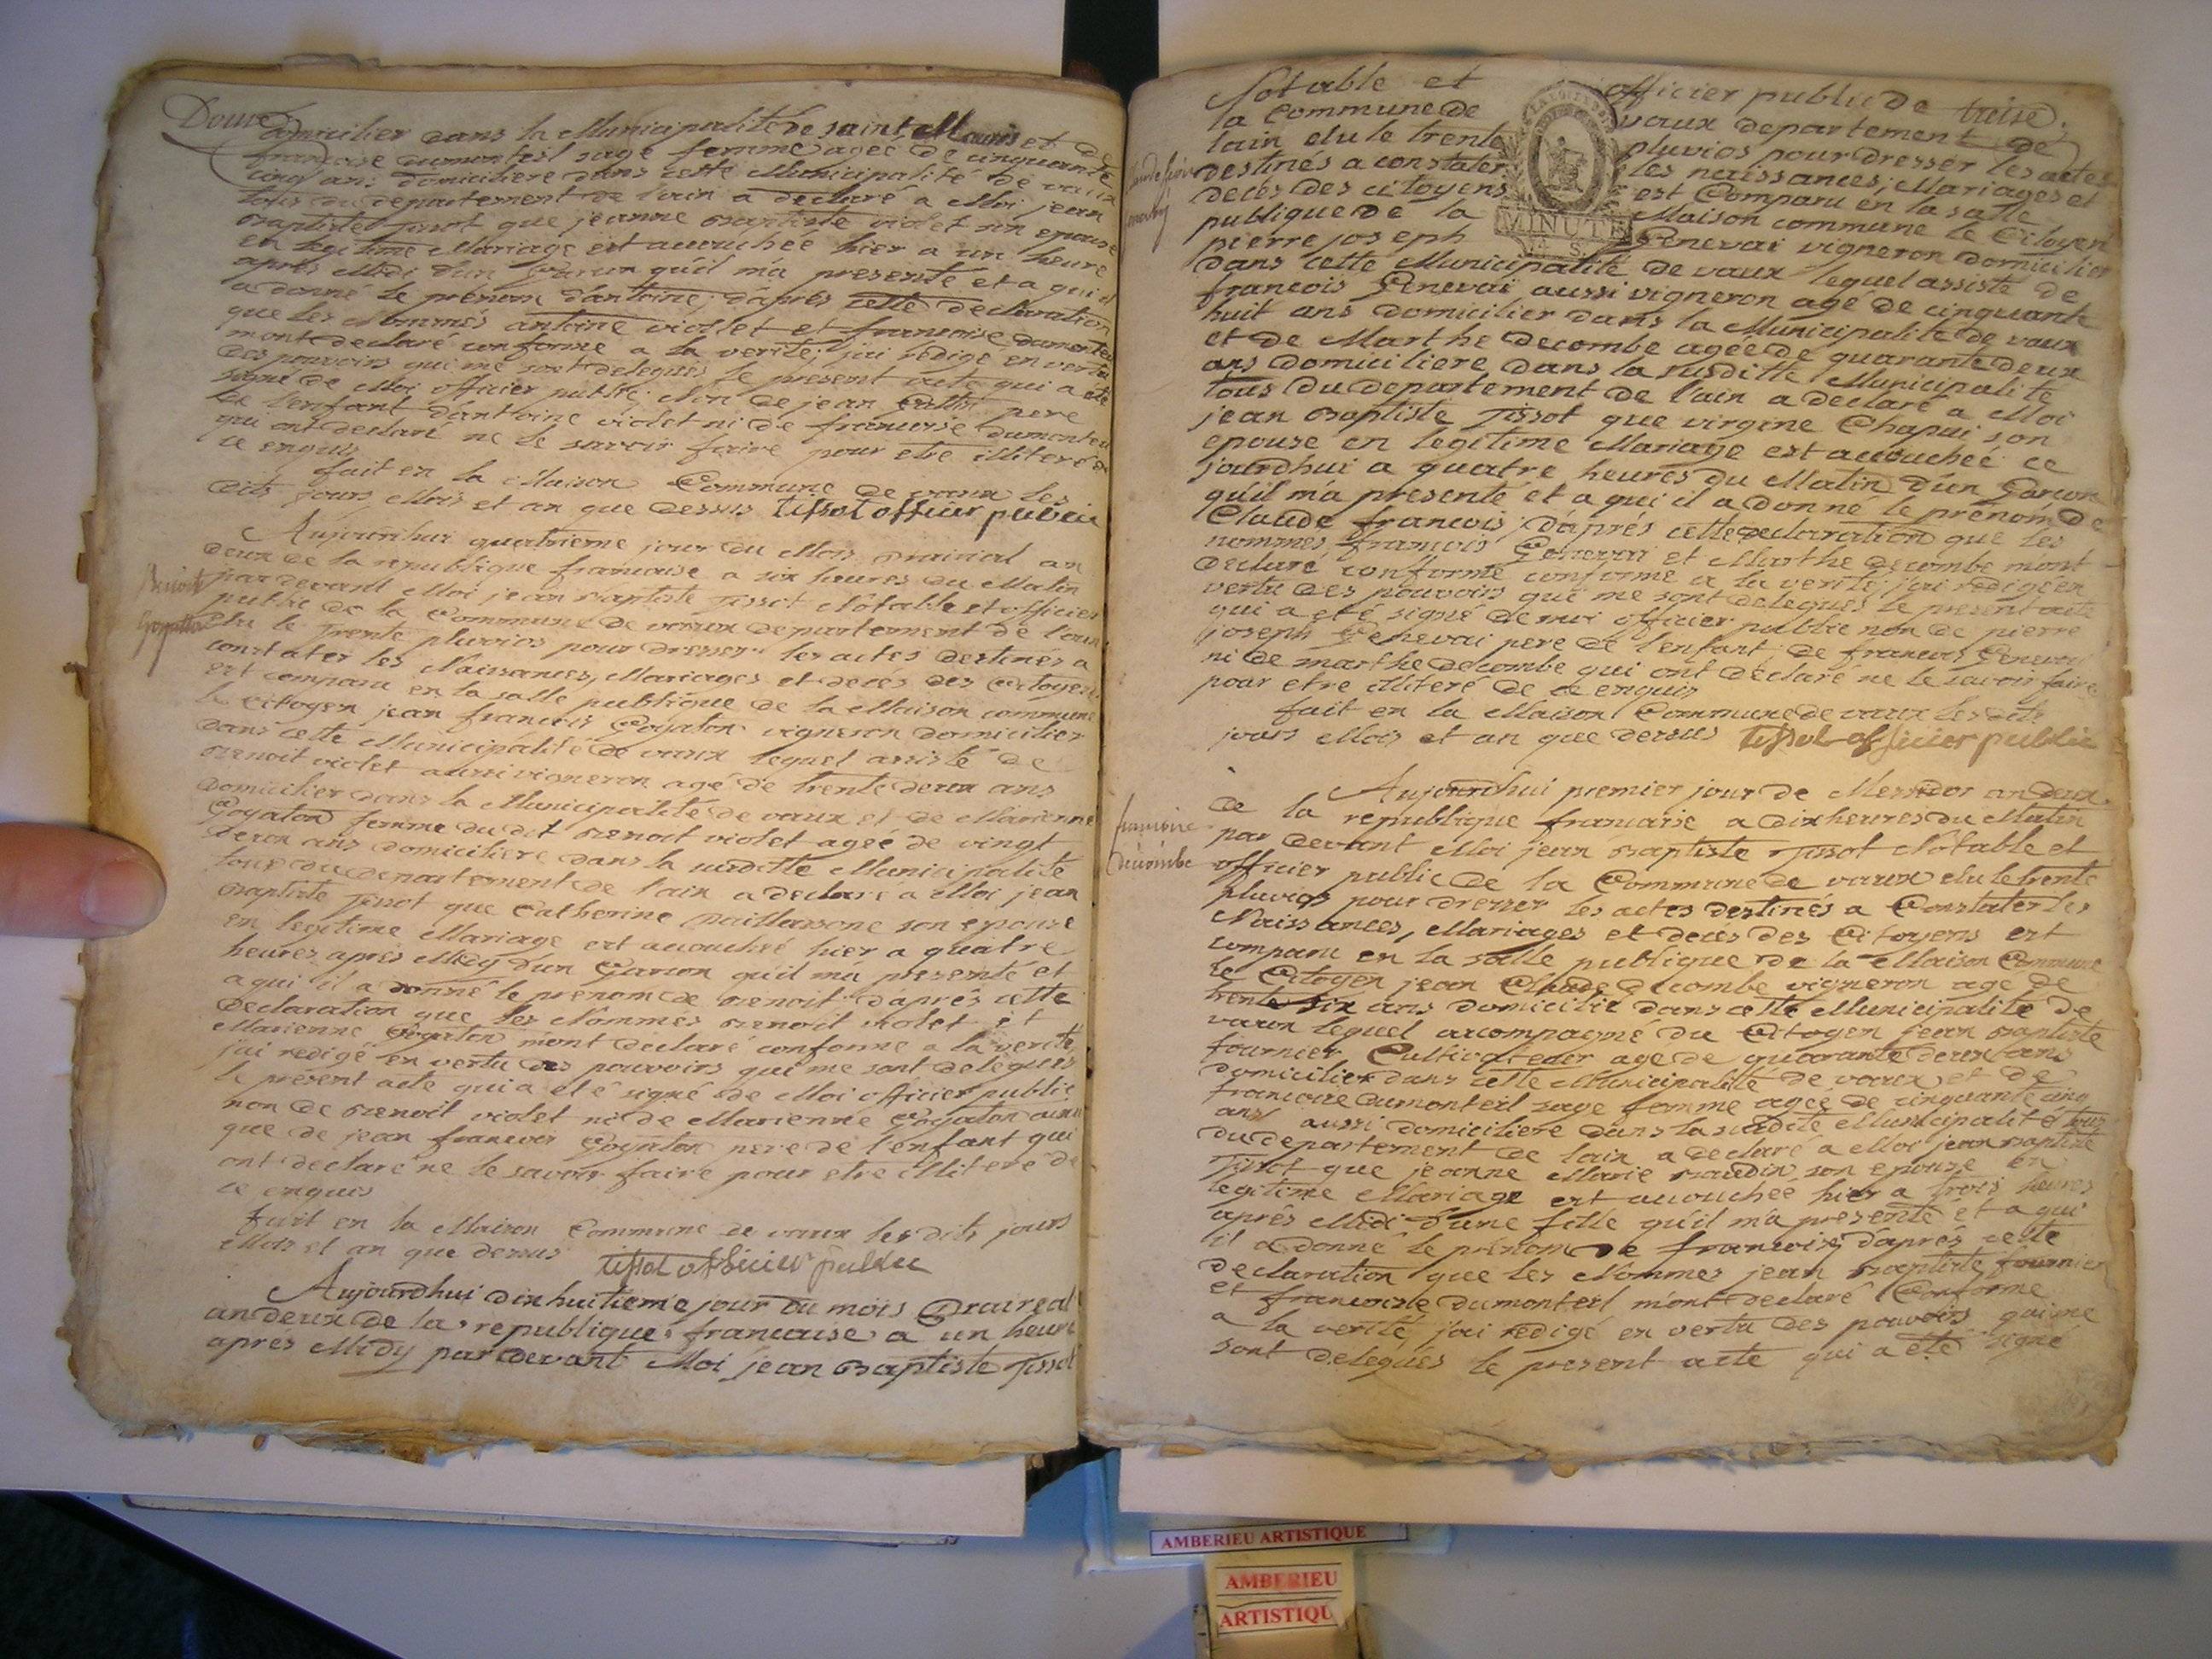 Douze
Domicilier dans la Municipalité de saint Mauris et de
francoise dumonteil sage femme agée de cinquante
cinq ans domiciliere dans cette Municipalité de vaux
tous du departement de lain a declaré a Moi jean
Baptiste tissot que jeanne Baptiste violet son epouse
en legitime Mariage est accouchée hier a un heure
aprés Midi d'un Garcon qu'il m'a presenté et a qui il
a donné le prénom d'antoine; d'aprés cette declaration
que les Nommés antoine viollet et francoise dumonteil
mont declaré conforme a la verité; j'ai redigé en vertu
des pouvoirs qui me sont delegués le present acte qui a été
signé de Moi officier public Non de jean pere
de l'enfant d'antoine violet ni de francoise dumonteil
qui ont declaré ne le savoir faire pour etre illiteré de
ce enquis
fait en la Maison Commune de vaux les
dits jours Mois et an que dessus tissot officier public
Aujourdhui quatrieme jour du Mois prairial an
deux de la republique francaise a six heures du Matin
par devant Moi jean Baptiste Tissot Notable et officier
Benoit
public de la Commune de vaux departement de l'ain
Goyatton
elu le trente pluvios pour dresser les actes destinés a
constater les Naissances, Mariages et decés des Citoyens
est comparu en la salle publique de la Maison commune
le Citoyen jean francois Goyaton vigneron domicilier
dans cette Municipalité de vaux lequel assisté de
Benoit violet aussi vigneron agé de trente deux ans
domicilier dans la Municipalité de vaux et de Marienne
Goyaton femme du dit Benoit violet agée de vingt
deux ans domiciliere dans la susditte Municipalité
tous du departement de lain a declaré a Moi jean
Baptiste Tissot que Catherine paillassone son epouse
en legitime Mariage est accouchée hier a quatre
heures aprés Midy d'un Garcon qu'il m'a presenté et
a qui il a donné le prenom de Benoit d'aprés cette
declaration que les Nommés Benoit violet et
Marienne Goyaton mont declaré conforme a la verité
j'ai redigé en vertu des pouvoirs qui me sont delegués
le présent acte qui a eté signé de Moi officier public
non de Benoit violet ni de Marienne Goyaton aussi
que de jean francois Goyaton pere de l'enfant qui
ont declaré ne le savoir faire pour etre illiteré de
ce enquis
fait en la Maison Commune de vaux les dits jours
Mois et an que dessus tissot officier public
Aujourdhui dixhuitieme jour du mois Praireal
an deux de la republique francaise a un heure
aprés Midy par devant Moi jean Baptiste Tissot
treise
Notable et officier public de
la Commune de vaux departement de
lain elu le trente pluvios pour dresser les actes
destinés a constater les naissances, Mariages et
decés des citoyens est Comparu en la salle
publique de la Maison commune le Citoyen
pierre joseph Genevai vigneron domicilier
MINUTE
dans cette Municipalité de vaux lequel assisté de
francois Genevai aussi vigneron age de cinquante
huit ans domicilier dans la Municipalité de vaux
et de Marthe decombe agée de quarante deux
ans domiciliere dans la susditte Municipalité
tous du departement de l'ain a declaré a Moi
jean Baptiste Tissot que virgine Chapui son
epouse en legitime Mariage est accouchée ce
jourdhui a quatre heures du Matin d'un Garcon
qu'il m'a presenté et a qui il a donné le prenom de
Claude francois; d'aprés cette declaration que les
nommés francois Genevai et Marthe decombe mont
declaré conforme conforme a la verité j'ai redigé en
vertu des pouvoirs qui me sont delegués le present acte
qui a eté signé de moi officier public non de pierre
joseph Genevai pere de l'enfant; de francois Genevai
ni de marthe decombe qui ont declaré ne le savoir faire
pour etre illiteré de ce enquis
fait en la Maison Commune de vaux les dits
jours Mois et an que dessus tissot officier public
Aujourdhui premier jour de Messidor an deux
de la republique francaise a dix heures du Matin
francoise
par devant Moi jean Baptiste Tissot Notable et
decombe
officier public de la Commune de vaux elu le trente
pluvios pour dresser les actes destinés a Constater les
Naissances, Mariages et decés des Citoyens est
comparu en la salle publique de la Maison Commune
le Citoyen jean Claude decombe vigneron age de
trente six ans domicilié dans cette Municipalité de
vaux lequel accompagné du Citoyen jean Baptiste
fournier Cultivateur age de quarante deux ans
domicilier dans cette Municipalité de vaux et de
francoise dumonteil sage femme agée de cinquante cinq
ans aussi domiciliere dans la susdite Municipalité tous
du departement de lain a declaré a Moi jean Baptiste
Tissot que jeanne Marie Baudin son epouse en
legitime Mariage est accouchée hier a trois heures
aprés Midi d'une fille qu'il m'a presenté et a qui
il a donné le prénom de francoise; d'aprés cette
declaration que les Nommés jean Baptiste fournier
et francoise dumonteil m'ont declaré Conforme
a la verité j'ai redigé en vertu des pouvoirs qui me
sont delegués le present acte qui a eté signé
AMBERIEU ARTISTIQUE
AMBERIEU
ARTISTIQU